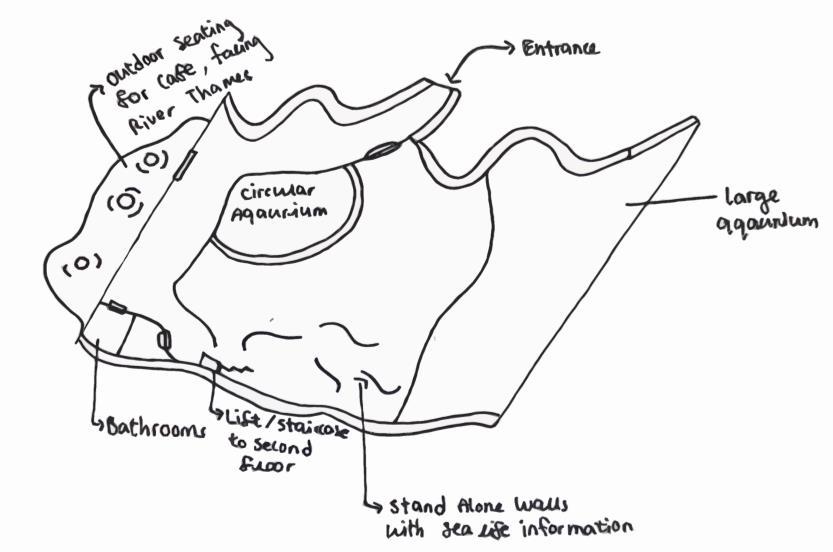 outdoor seating
for cafe, facing
River Thames
Entrance
Circular
Aqaurium
large
aqaurium
Bathrooms
Lift/staircase
to second
floor
Stand Alone walls
with sea life information